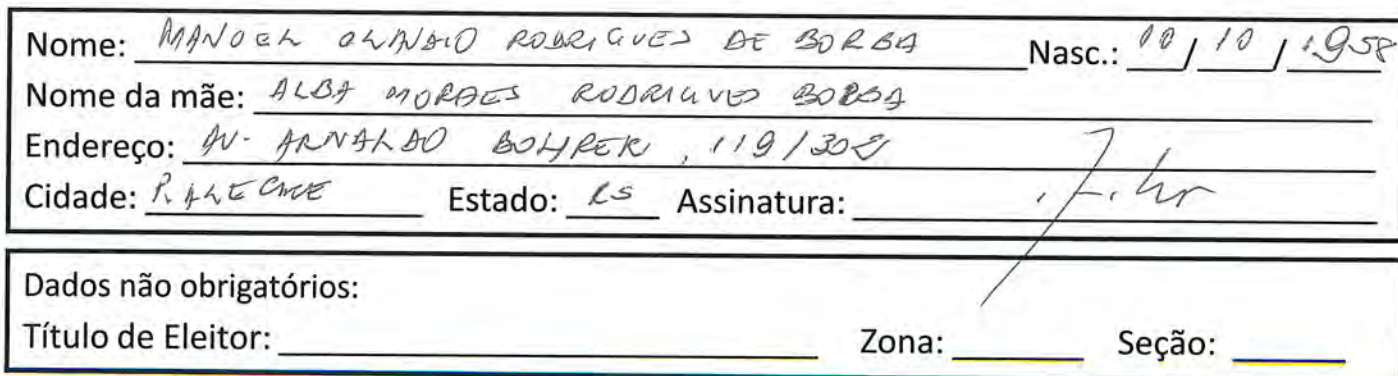 Nome: MANOEL OLINDIO RODRIGUES DE BORBA Nasc.: 10 / 10 / 1958
Nome da mãe: ALBA MORAES RODRIGUES BORBA
Endereço: AV. ARNALDO BOHRER, 119/302
Cidade: P. ALEGRE Estado: RS Assinatura:
Dados não obrigatórios:
Título de Eleitor: Zona: Seção: